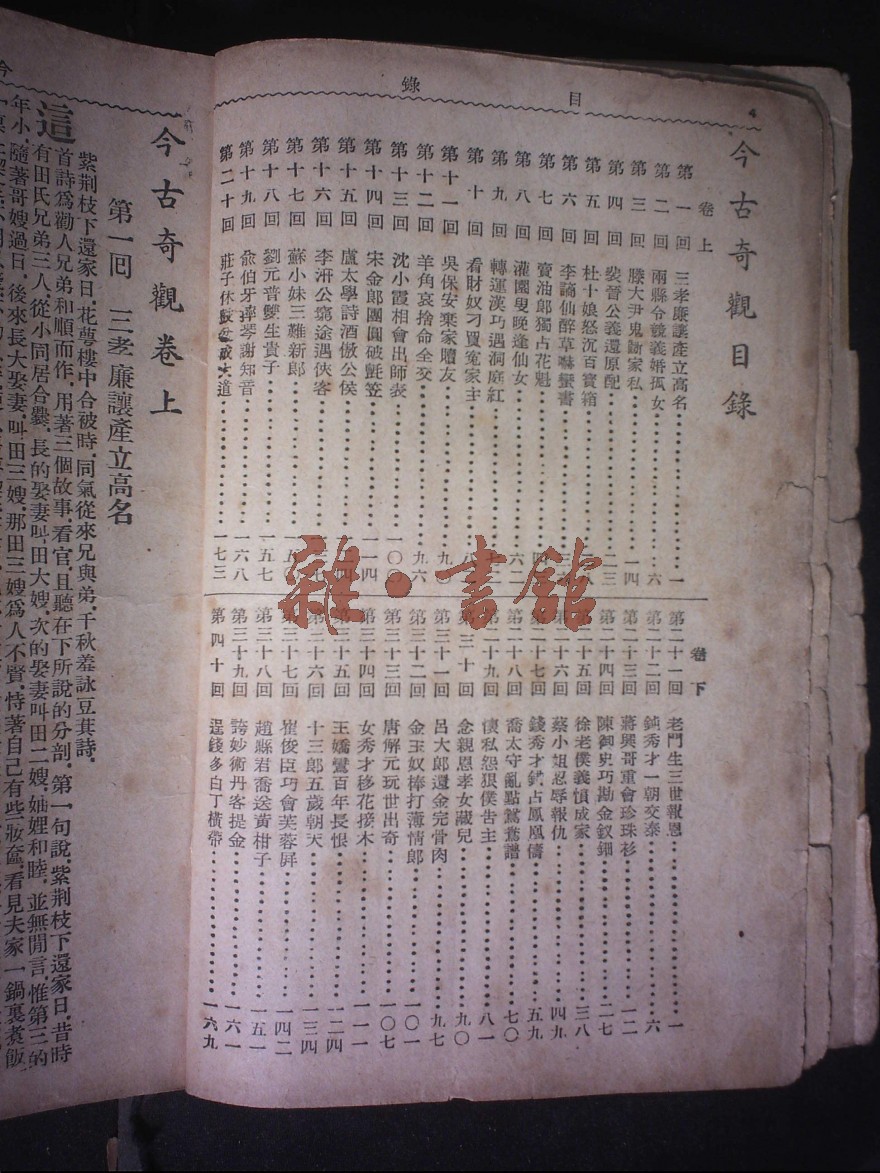 目錄
今古奇觀目錄
卷上
第一回 三孝廉讓產立高名 一
第二回 兩縣令競義婚孤女 六
第三回 滕大尹鬼斷家私 一四
第四回 裴晉公義還原配 二三
第五回 杜十娘怒沉百寶箱
第六回 李謫仙醉草嚇蠻書
第七回 賣油郎獨占花魁
第八回 灌園叟晚逢仙女 六二
第九回 轉運漢巧遇洞庭紅
第十回 看財奴刁買冤家主
第十一回 吳保安棄家贖友
第十二回 羊角哀捨命全交 九六
第十三回 沈小霞相會出師表 一〇〇
第十四回 宋金郎團圓破氈笠 一一四
第十五回 盧太學詩酒傲公侯
第十六回 李汧公窮途遇俠客
第十七回 蘇小妹三難新郎
第十八回 劉元普雙生貴子 一五七
第十九回 俞伯牙摔琴謝知音 一六八
第二十回 莊子休鼓盆成大道 一七三
卷下
第二十一回 老門生三世報恩 一
第二十二回 鈍秀才一朝交泰 六
第二十三回 蔣興哥重會珍珠衫 一二
第二十四回 陳御史巧勘金釵鈿 二七
第二十五回 徐老僕義憤成家 三八
第二十六回 蔡小姐忍辱報仇 四九
第二十七回 錢秀才錯占鳳凰儔 五九
第二十八回 喬太守亂點鴛鴦譜 七〇
第二十九回 懷私怨狠僕告主 八一
第三十回 念親恩孝女藏兒 九〇
第三十一回 呂大郎還金完骨肉 九七
第三十二回 金玉奴棒打薄情郎 一〇一
第三十三回 唐解元玩世出奇 一〇七
第三十四回 女秀才移花接木 一一一
第三十五回 王嬌鸞百年長恨 一二四
第三十六回 十三郎五歲朝天 一三四
第三十七回 崔俊臣巧會芙蓉屏 一四二
第三十八回 趙縣君喬送黃柑子 一五一
第三十九回 誇妙術丹客提金 一六一
第四十回 逞錢多白丁橫帶 一六九
今古奇觀卷上
第一回 三孝廉讓產立高名
紫荊枝下還家日,花萼樓中合被時,同氣從來兄與弟,千秋羞詠豆萁詩.
這首詩為勸人兄弟和順而作,用著三個故事,看官,且聽在下所說的分剖,第一句說,紫荊枝下還家日,昔時
有田氏兄弟三人,從小同居合爨,長的娶妻叫田大嫂,次的娶妻叫田二嫂,妯娌和睦,並無閒言,惟第三的
年小,隨著哥嫂過日,後來長大娶妻,叫田三嫂,那田三嫂為人不賢,恃著自己有些妝奩,看見夫家一鍋裏煮飯
雜·書館